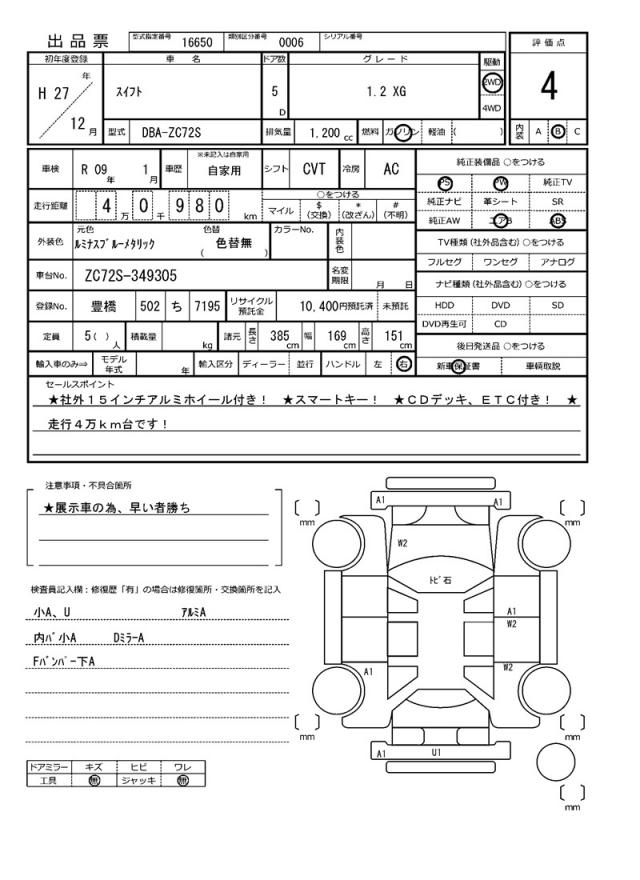 出品票 型式指定番号 16650 類別区分番号 0006 シリアル番号
評価点
4
内装 A B C
初年度登録 車名 ドア数 グレード 駆動
H 27 年 12 月 スイフト 5 D 1.2 XG 2WD 4WD
型式 DBA-ZC72S 排気量 1,200 cc 燃料 ガソリン 軽油 ( )
車検 R 09 年 1 月 車歴 ※未記入は自家用 自家用 シフト CVT 冷房 AC
走行距離 4 万 0 千 9 8 0 km ○をつける
マイル $ (交換) * (改ざん) # (不明)
外装色 元色 ルミナスブルーメタリック 色替 ( 色替無 ) カラーNo. 内装色
車台No. ZC72S-349305 名変期限 月 日
登録No. 豊橋 502 ち 7195 リサイクル預託金 10,400円預託済 未預託
定員 5( ) 人 積載量 kg 諸元 長さ 385 cm 幅 169 cm 高さ 151 cm
輸入車のみ⇒ モデル年式 年 輸入区分 ディーラー 並行 ハンドル 左 右
純正装備品 ○をつける
PS PW 純正TV
純正ナビ 革シート SR
純正AW エアB ABS
TV種類 (社外品含む) ○をつける
フルセグ ワンセグ アナログ
ナビ種類 (社外品含む) ○をつける
HDD DVD SD
DVD再生可 CD
後日発送品 ○をつける
新車保証書 車輌取説
セールスポイント
★社外15インチアルミホイール付き! ★スマートキー! ★CDデッキ、ETC付き! ★
走行4万km台です!
注意事項・不具合箇所
★展示車の為、早い者勝ち
検査員記入欄：修復歴「有」の場合は修復箇所・交換箇所を記入
小A、U アルミA
内ﾊﾞ小A DミラーA
Fバンパー下A
ドアミラー キズ ヒビ ワレ
工具 無 ジャッキ 無
A1 A1
mm mm
W2
トビ石
A1
W2
A1 W2
mm mm
A1 U1
mm